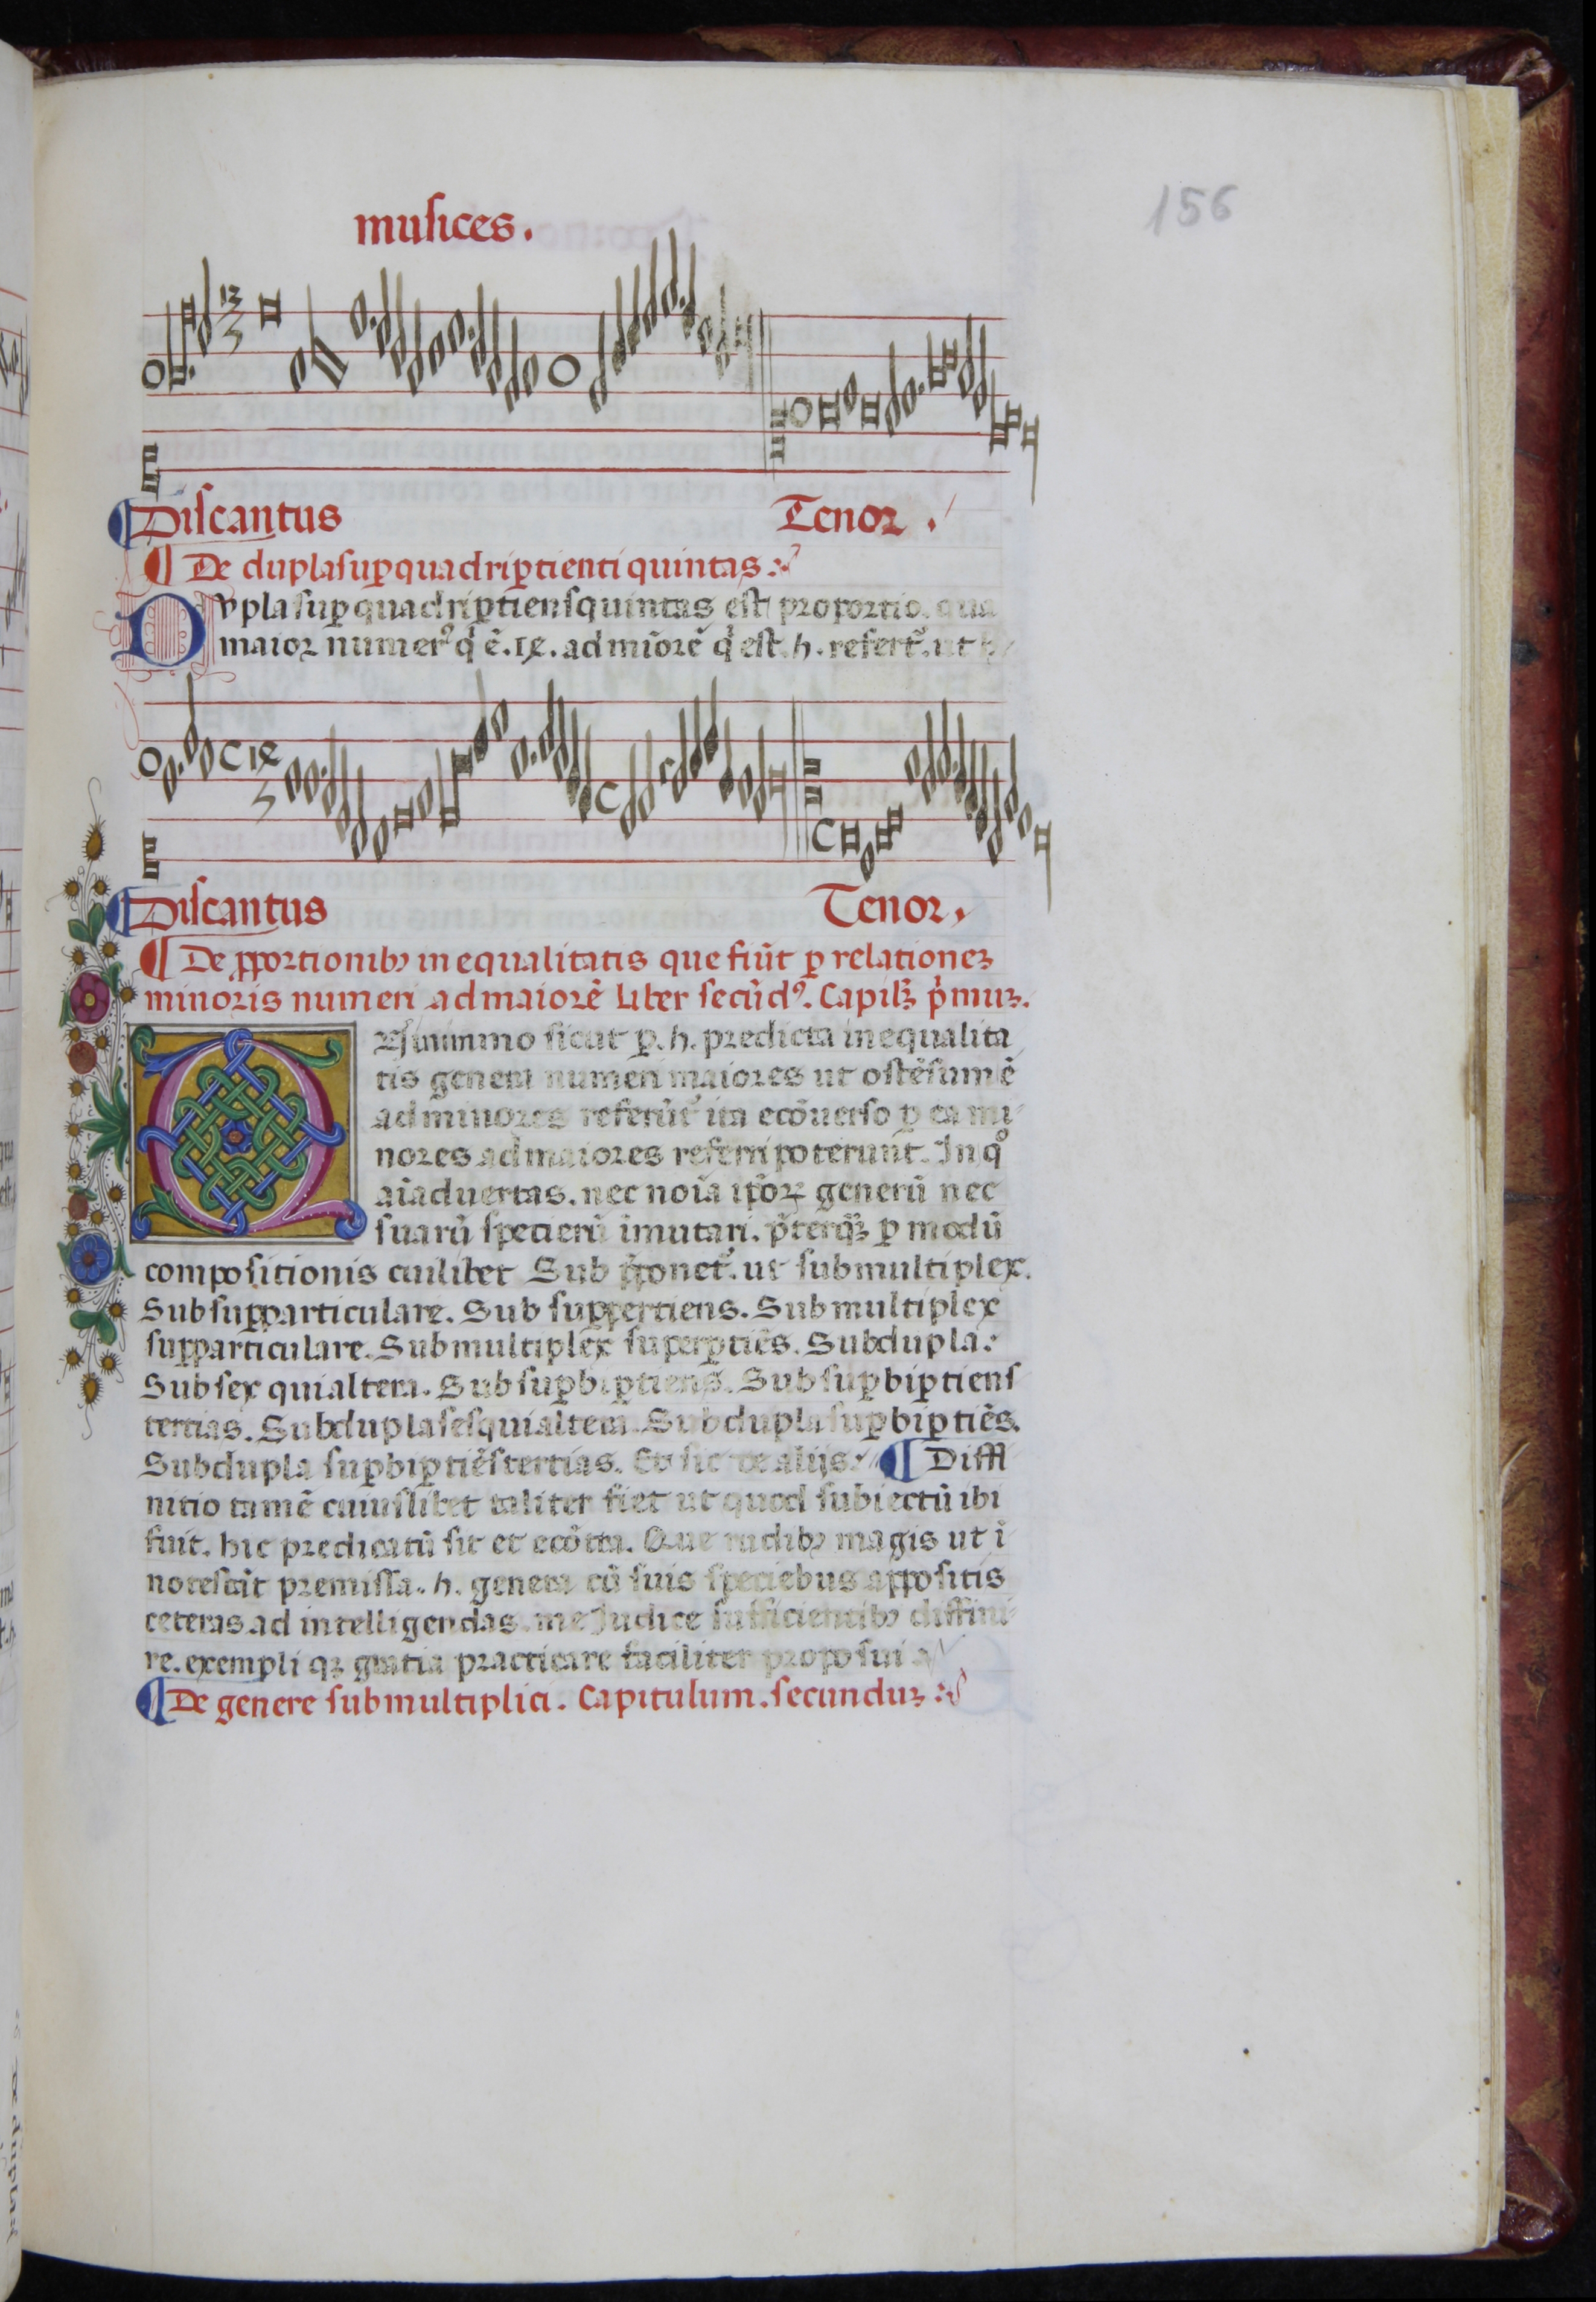 156
musices.
12
5
Discantus Tenor.
De duplasuꝑquadriꝑtienti quintas
Dvpla suꝑquadriꝑtiensquintas est proportio. qua
maior numerꝰ q̇ ē .14. ad miōrē q̇ est .5. refert᷑. ut h
14
5
Discantus Tenor.
De ꝓportionibꝫ inequalitatis que fiūt ꝑ relationeꝫ
minoris numeri ad maiorē Liber secūdꝰ. Capilꝫ ṗmuꝫ.
tis genera numeri maiores ut ostēsum ē
ad minores referūt᷑ ita ecōuerso ꝑ ea mi
nores ad maiores referri poterunt. In qͦ
aīaduertas. nec noīa ip̄oꝝ generū nec
suarū specierū īmutari. p̄terqꝫ ꝑ modū
compositionis cuilibet Sub p̄ponet᷑. ut submultiplex.
Subsuꝑparticulare. Sub suꝑpertiens. Submultiplex
suꝑparticulare. Submultiplex superꝑtiēs. Subdupla.
Subsex quialtera. Subsuꝑbiꝑtiens. Subsuꝑbiꝑtiens
tertias. Subduplasesquialtera. Subduplasuꝑbiꝑtiēs.
Subdupla suꝑbiꝑtiēstertias. Et sic de alijs. Diffi
nitio tamē cuiuslibet taliter fiet ut quod subiectū ibi
fuit. hic predicatū sit et ecōtra. Que rudibꝫ magis ut ī
notescāt premissa .5. genera cū suis speciebus appositis
ceteras ad intelligendas. me Judice sufficientibꝫ diffini
re. exempli qꝫ gratia practicare faciliter proposui
De genere submultiplici. Capitulum. secunduꝫ